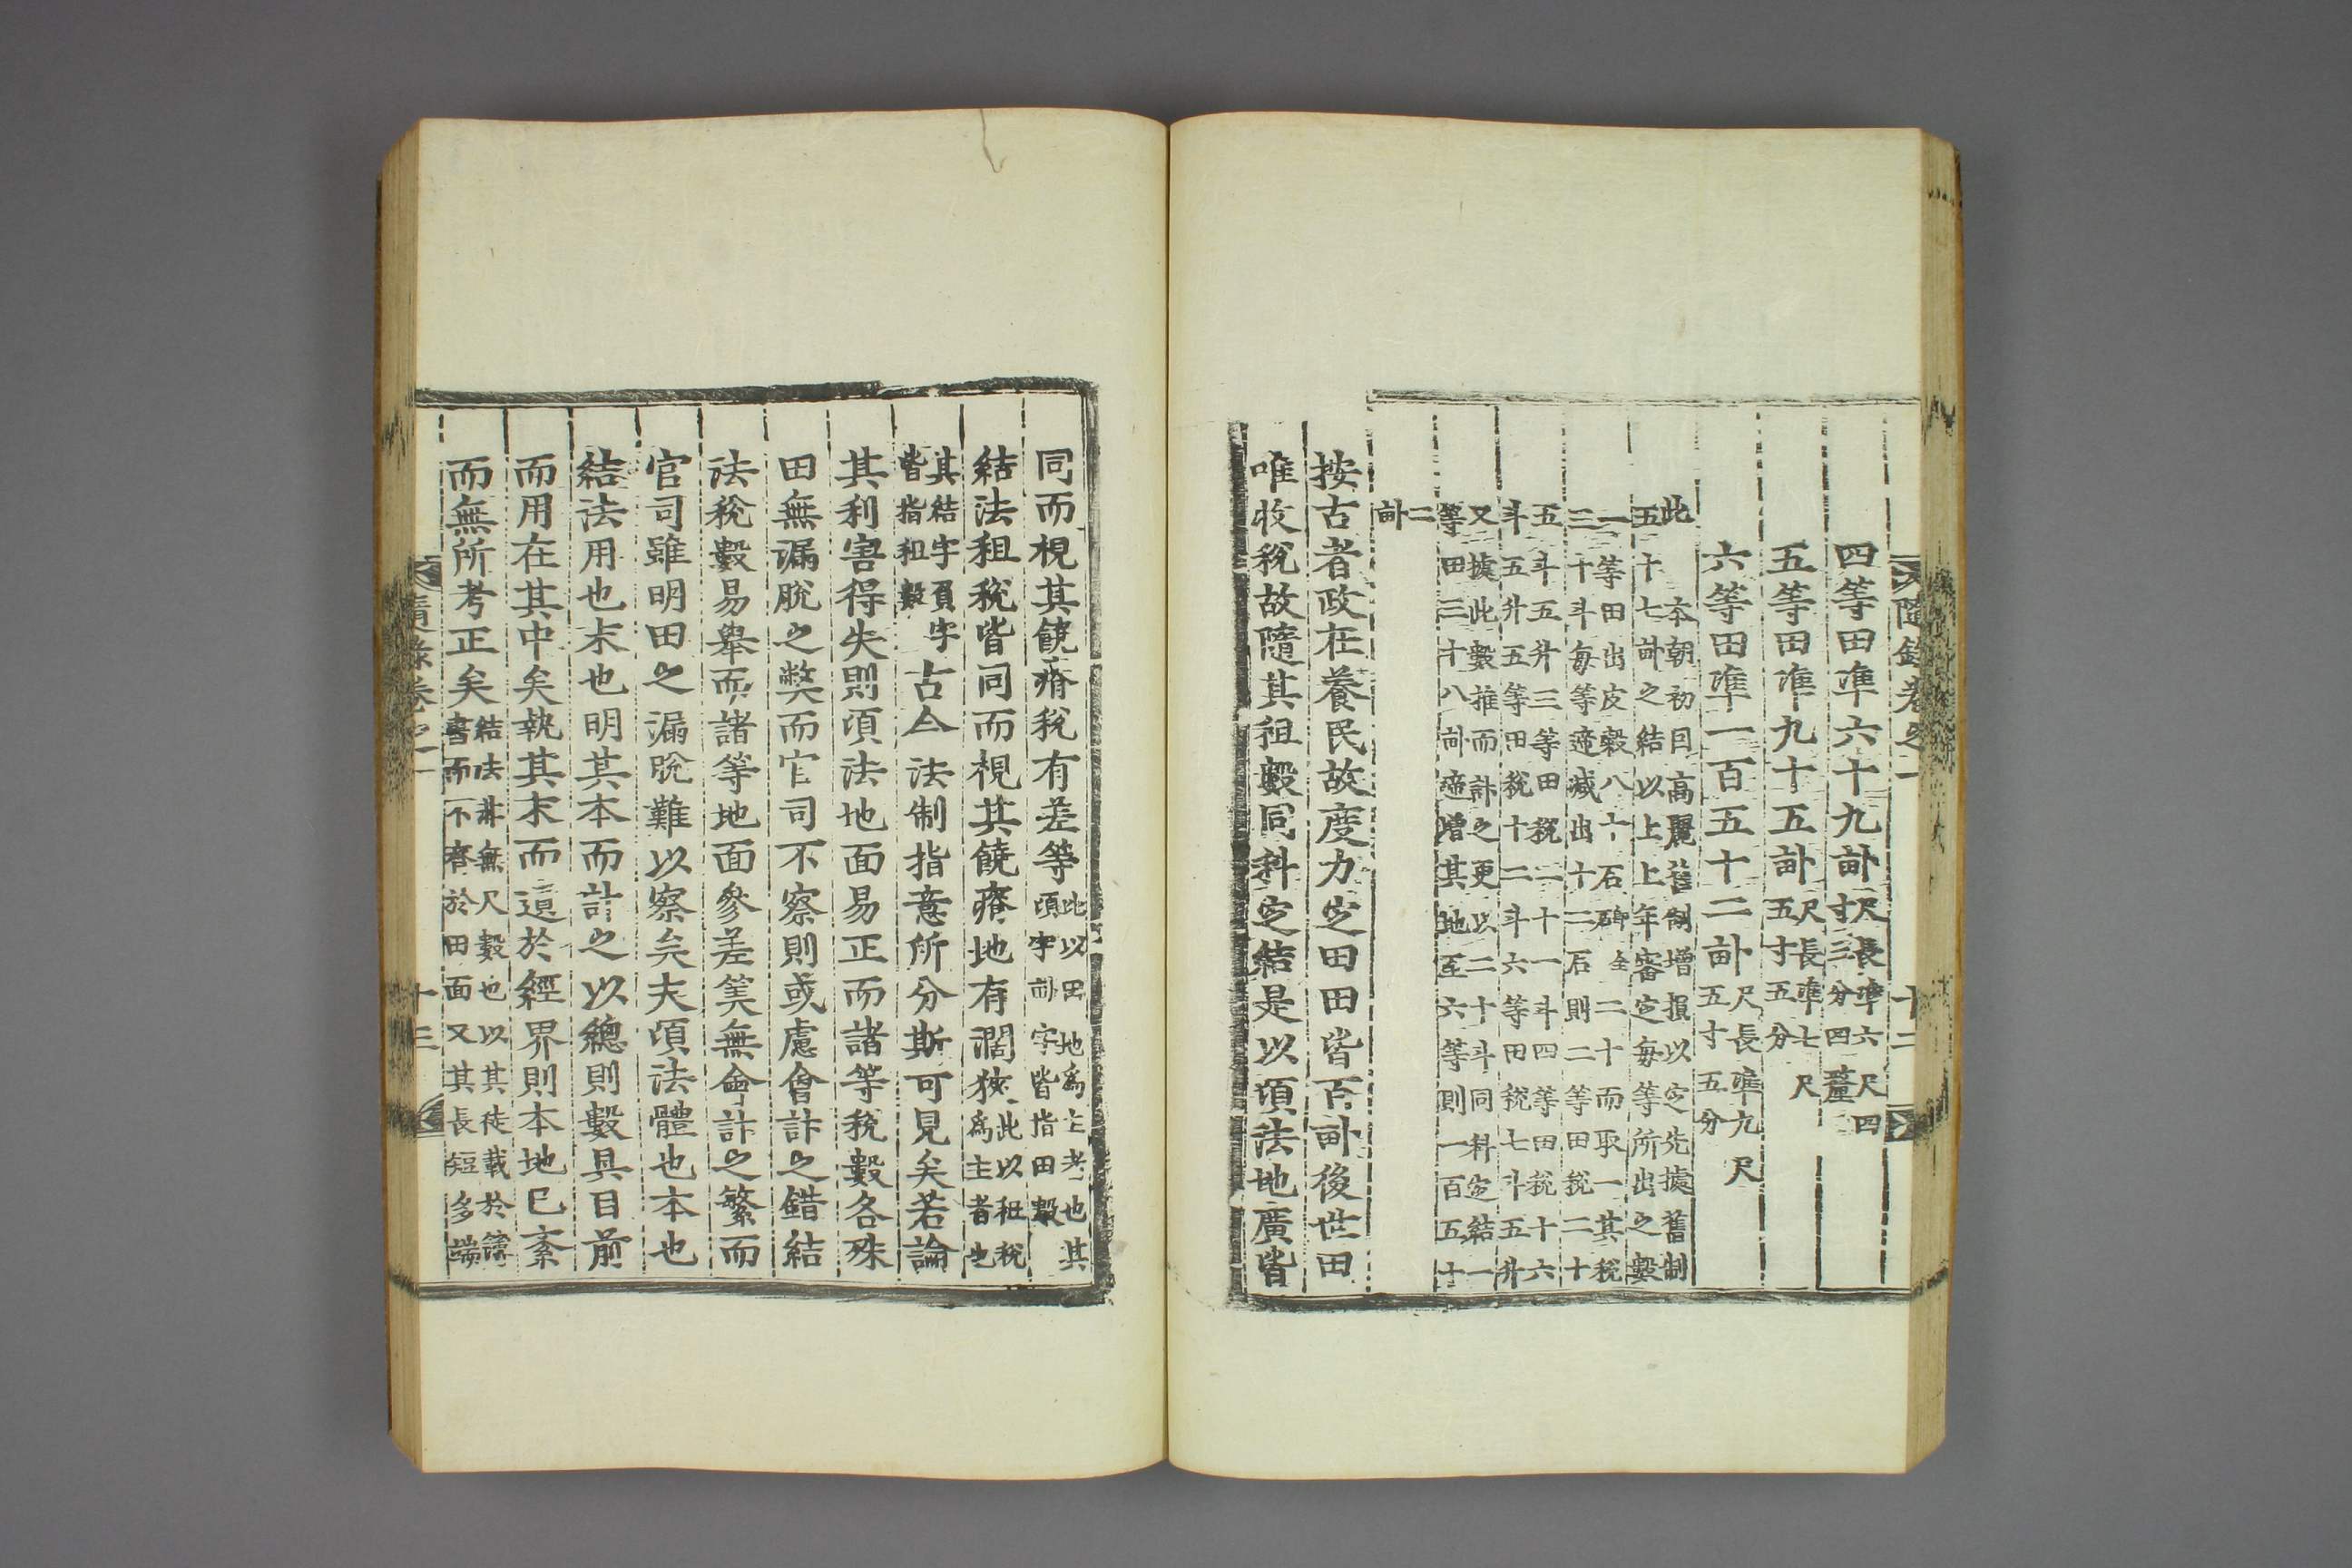 隨錄卷之一 十二
四等田準六十九畝尺長準六尺四
寸三分四釐
五等田準九十五畝尺長準七尺
五寸五分
六等田準一百五十二畝尺長準九尺
五寸五分
此 本朝初因高麗舊制增損以定先據舊制
五十七畝之結以上上年審定每等所出之數
一等田出皮穀八十石二十而取一其稅
三十斗每等遞減出十二石則二等田稅二十
五斗五升三等田稅二十一斗四等田稅十六
斗五升五等田稅十二斗六等田稅七斗五升
又據此數推而計之更以二十斗同科定結一
等田三十八畝遞增其地至六等則一百五十
二
畝
按古者政在養民故度力定田田皆百畝後世田
唯收稅故隨其租數同科定結是以頃法地廣皆
同而視其饒瘠稅有差等此以田地爲主者也其
頃字畝字皆指田數
結法租稅皆同而視其饒瘠地有濶狹此以租稅
爲主者也
其結字負字
皆指租數 古今法制指意所分斯可見矣若論
其利害得失則頃法地面易正而諸等稅數各殊
田無漏脫之弊而官司不察則或慮會計之錯結
法稅數易擧而諸等地面參差筭無會計之繁而
官司雖明田之漏脫難以察矣夫頃法體也本也
結法用也末也明其本而計之以總則數具目前
而用在其中矣執其末而遺於經界則本地已紊
而無所考正矣結法非無尺數也以其徒載於簿
書而不齊於田面又其長短多端
隨錄卷之一 十三